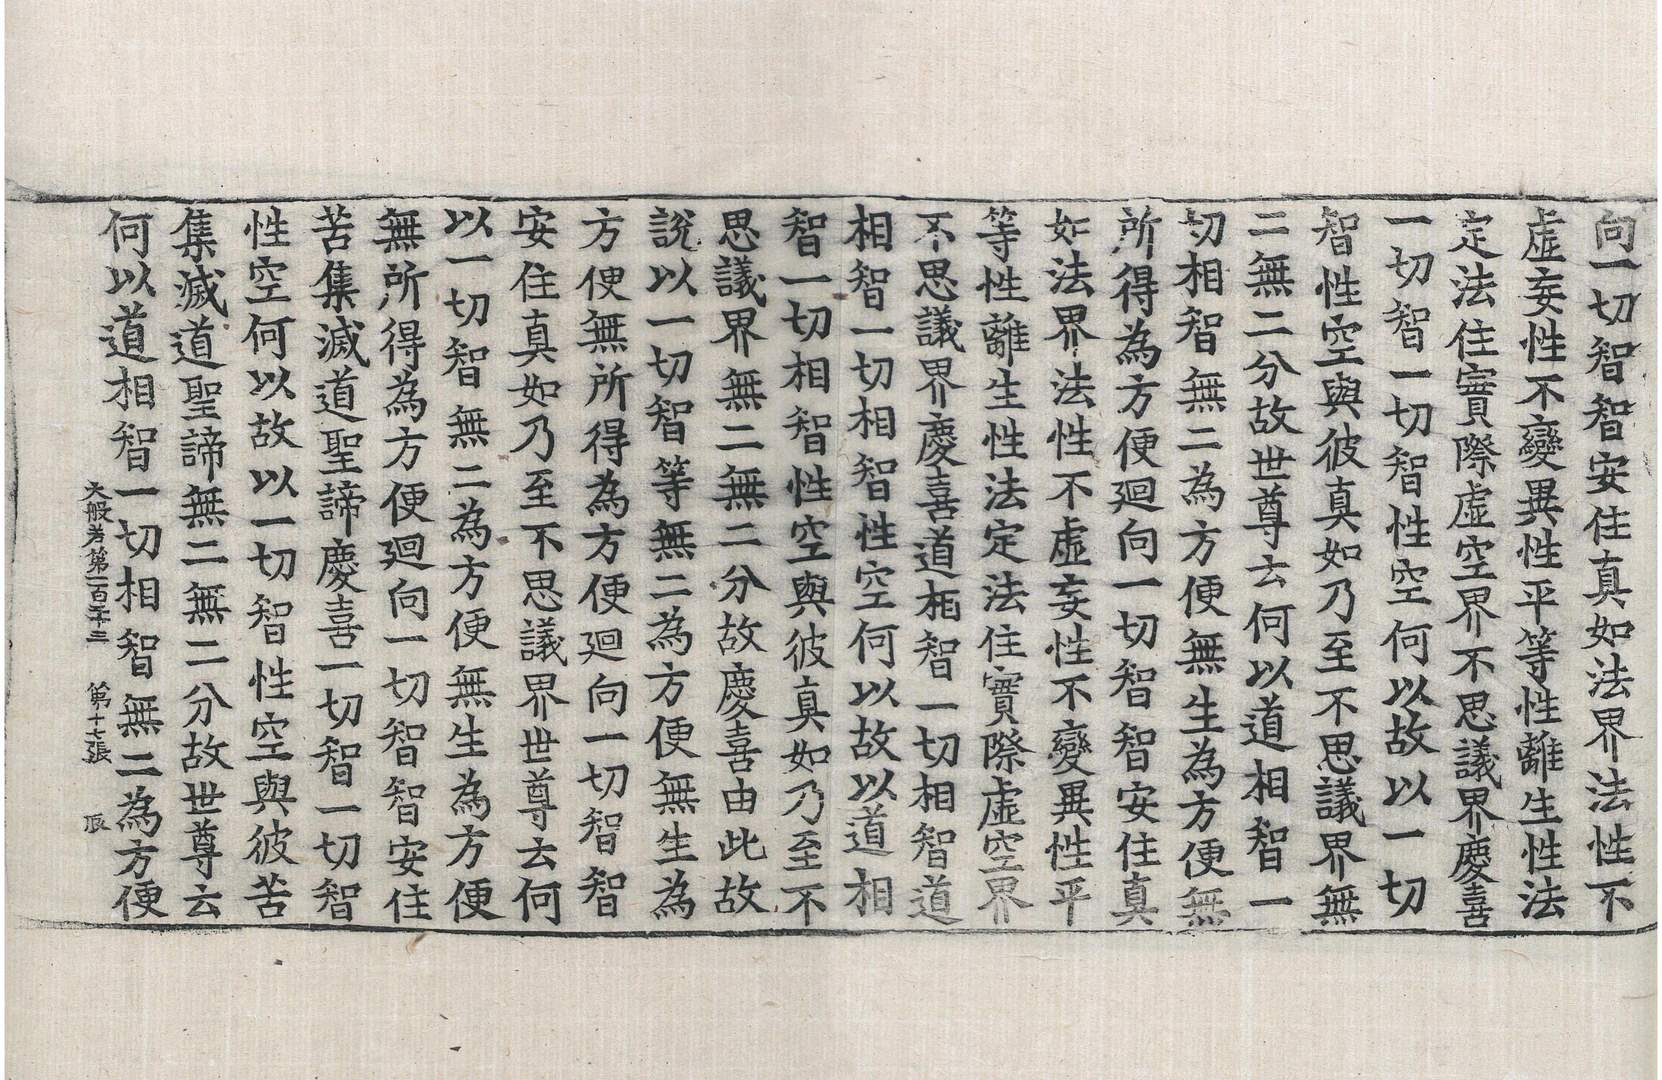 向一切智智安住真如法界法性不
虛妄性不變異性平等性離生性法
定法住實際虛空界不思議界慶喜
一切智一切智性空何以故以一切
智性空與彼真如乃至不思議界無
二無二分故世尊云何以道相智一
切相智無二為方便無生為方便無
所得為方便迴向一切智智安住真
如法界法性不虛妄性不變異性平
等性離生性法定法住實際虛空界
不思議界慶喜道相智一切相智道
相智一切相智性空何以故以道相
智一切相智性空與彼真如乃至不
思議界無二無二分故慶喜由此故
說以一切智等無二為方便無生為
方便無所得為方便迴向一切智智
安住真如乃至不思議界世尊云何
以一切智無二為方便無生為方便
無所得為方便迴向一切智智安住
苦集滅道聖諦慶喜一切智一切智
性空何以故以一切智性空與彼苦
集滅道聖諦無二無二分故世尊云
何以道相智一切相智無二為方便
大般若第一百二十三 第十七張 辰